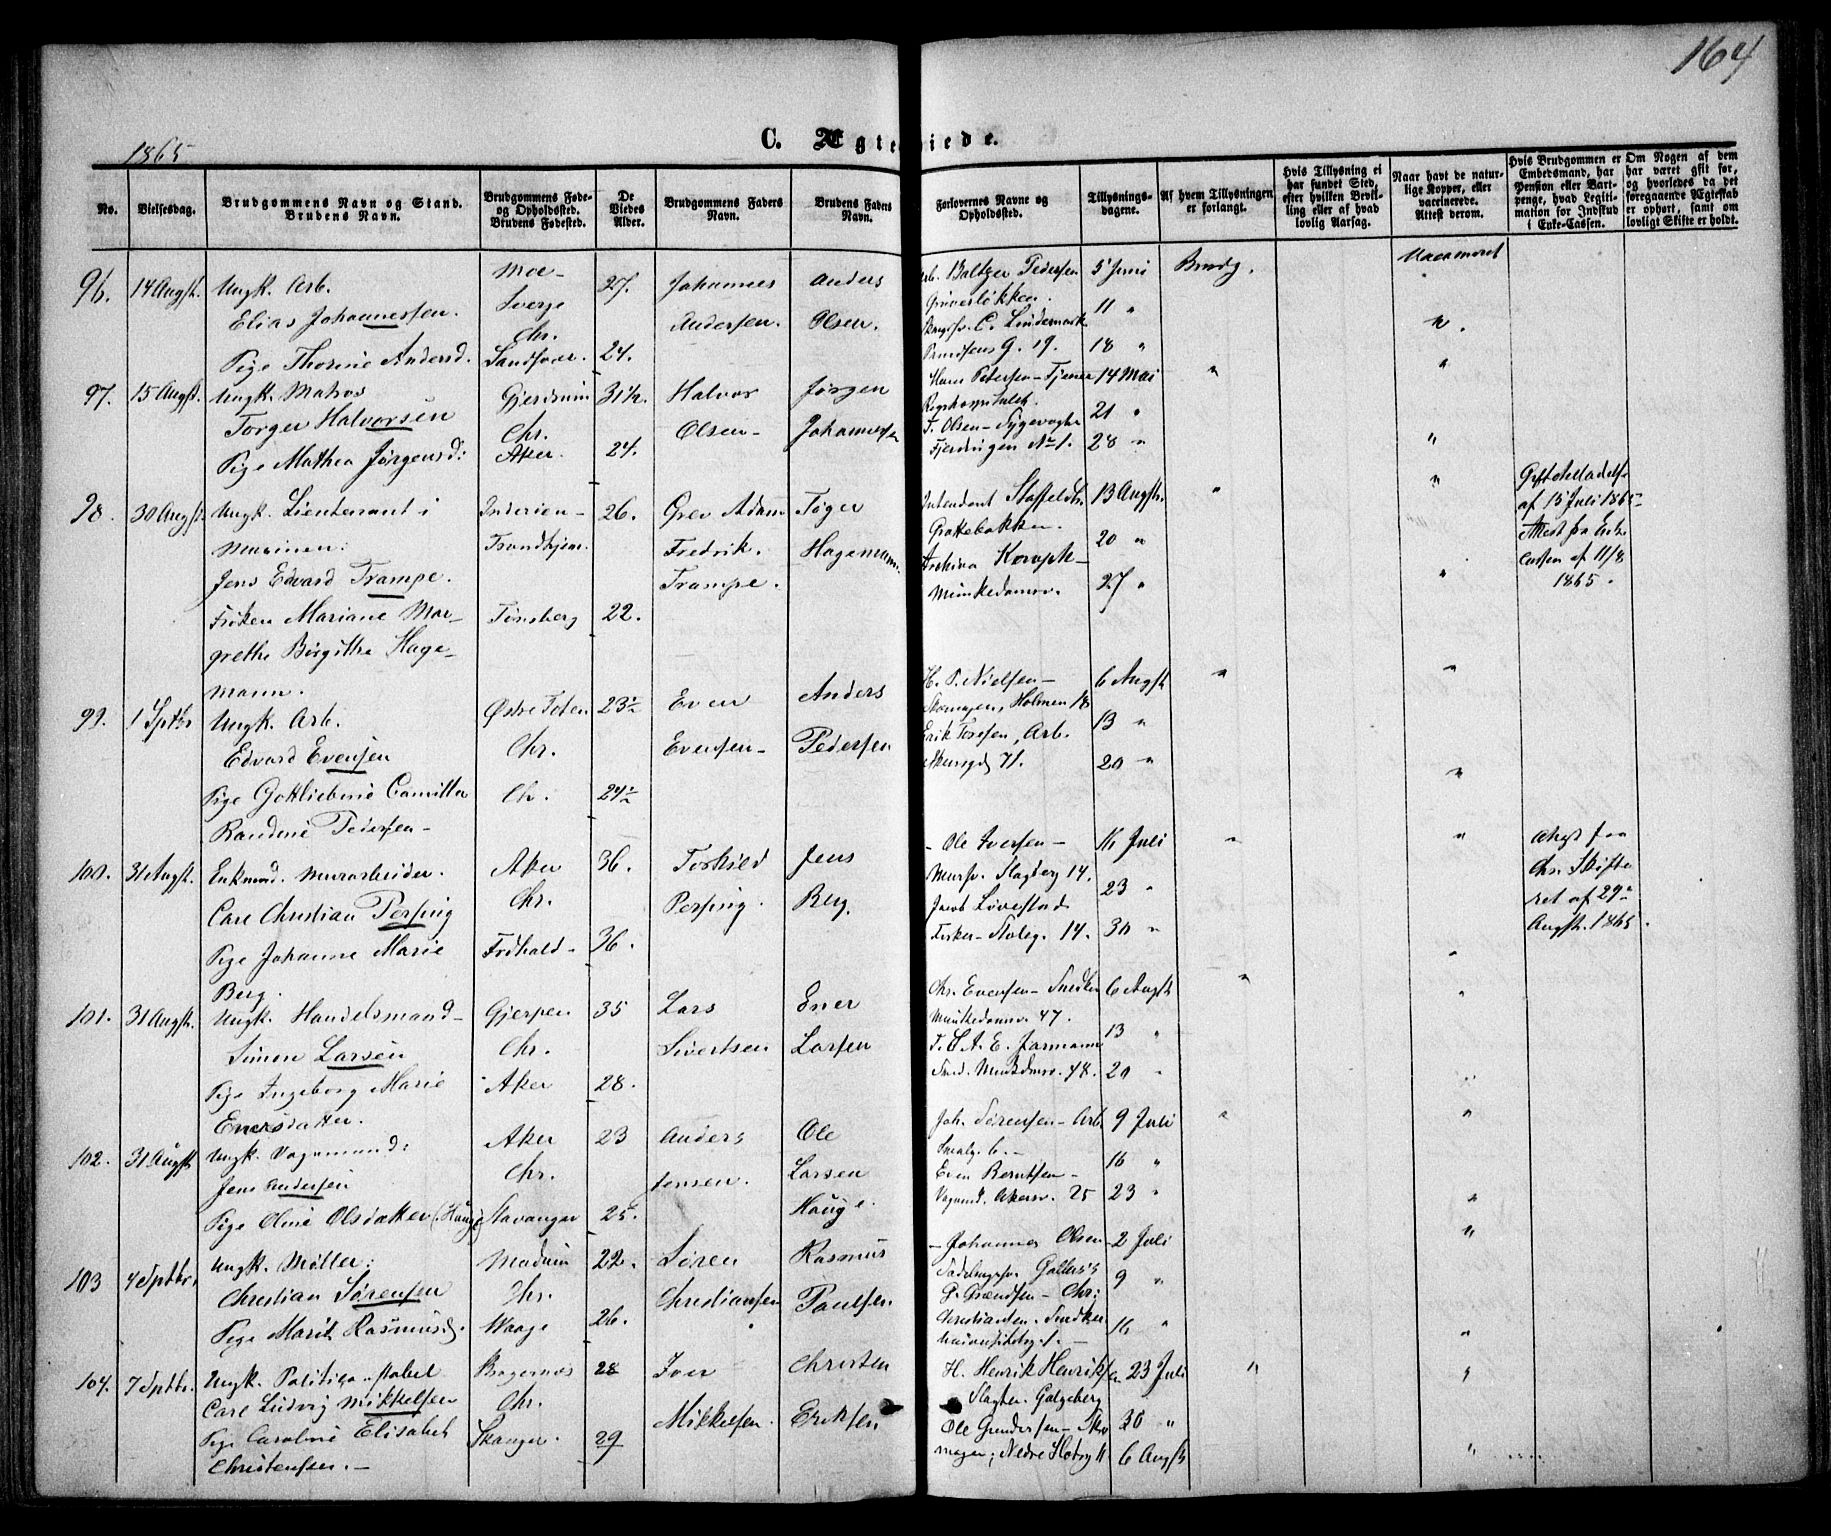 164
1865
C. Ægteviede.
No.
Vielsesdag.
Brudgommens Navn og Stand.
Brudens Navn.
Brudgommens Føde-
og Opholdsted.
Brudens Fødested.
De
Viedes
Alder.
Brudgommens Faders
Navn.
Brudens Faders
Navn.
Forlovernes Navne og
Opholdsted.
Tillysnings-
dagene.
Af hvem Tillysningen
er forlangt.
Hvis Tillysning ei
har fundet Sted,
efter hvilken Bevil-
ling eller af hvad
lovlig Aarsag.
Naar havt de natur-
lige Kopper, eller
vaccinerede.
Attest derom.
Hvis Brudgommen er
Embedsmand, har
Pension eller Vart-
penge, hvad Legiti-
mation for Indskud
i Enke-Cassen.
Om Nogen af dem
har været gift før,
og hvorledes da det
foregaaende Ægteskab
er ophørt, samt om
lovligt Skifte er holdt.
96. 14 Augst. Ungk. Arb. 27. Johannes Anders Arb. Baltzer Pedersen 5 Juni Brudg.
Elias Johannessen. Sverge Andersen. Olsen. Grünerløkken. 11 "
Chr. C. Lindemark
Pige Thorine Andersd. 24. 19. 18 "
97. 15 Augst. Ungk. Matros Gjerdrum 31½. Halvor Jørgen Hans Petersen – Tjener 14 Mai "
Torger Halvorsen Chr. Olsen – Johannesen Rigshospitalet. 21 "
T. Olsen – Sygevogter
Pige Mathea Jørgensd: Aker. 24. Fjerdingen No 1. 28 "
98. 30 Augst. Ungk. Lieutenant i Inderøen – 26. Grev Adam Tøger Intendant Staffeldt. 13 Augst. "
Marinen: Trondhjem. Fredrik. Hagemann. Grottebakken. 20 "
Jens Edvard Trampe. Trampe. Munkedamsv. 27 "
af 15 Juli 1865
Attest fra Enke
Cassen af 11/8
1865.
Frøken Mariane Mar- Tønsberg 22.
grethe Birgitte Hage-
mann.
99. 1 Sptbr Ungk. Arb. Østre Toten 23½ Even Anders H. P. Nielsen – 6 Augst "
Holmen 18 13 "
Edvard Evensen Chr. Evensen – Pedersen Erik Toresen, Arb.
71. 20 "
Pige Gottliebine Camilla Ch. 24½
Randine Pedersen –
100. 31 Augst. Enkmd. Murarbeider. Aker 36. Torkild Jens – Ole Iversen – 16 Juli "
Chr. Mursv. Slagberg 14. 23 "
Carl Christian Persing Persing. Berg. Jacob Løvestad
Pige Johanne Marie Frdhald – 36. Storg. 14. 30 "
Chr. Skifte
ret af 29de
Augst. 1865.
Berg.
101. 31 Augst. Ungk. Handelsmand – Gjerpen 35 Lars Ener Chr. Evensen – Snedker 6 Augst "
Munkedamsv 47. 13 "
Simon Larsen Chr. Sivertsen Larsen A. E. Jarmann
Pige Ingeborg Marie Aker 28. Munkdmsv. 48. 20 "
Enersdatter.
102. 31 Augst Ungk. Vognmand: Aker 23 Anders Ole Joh. Sørensen – Arb 9 Juli "
Smalg. 6. – 16 "
Jens Andersen Chr. Jensen. Larsen Even Berntsen –
Pige Oline Olsdatter (Hauge) Stavanger 25. Hauge. Vognmd. Akersv. 25 23 "
103 4 Sptbr. Ungk. Møller: Modum 22. Søren Rasmus – Johannes Olsen – 2 Juli
Christian Sørensen Chr. Christiansen Paulsen. 9 "
Pige Marit Rasmusd. Waage 26. Christiansen. Snedker 16 "
104. 7 Sptbr. Ungk. Politiconstabel Bragernæs 28 Iver Christen H. Henrik Henriksen 23 Juli "
Carl Ludvig Mikkelsen Chr. Mikkelsen. Eriksen Slagter. Galgeberg
Ole Gundersen – Sko 30 "
Pige Caroline Elisabet Skanger. 29 mager; Nedre Slotsg 11 6 Augst
Christensen. –